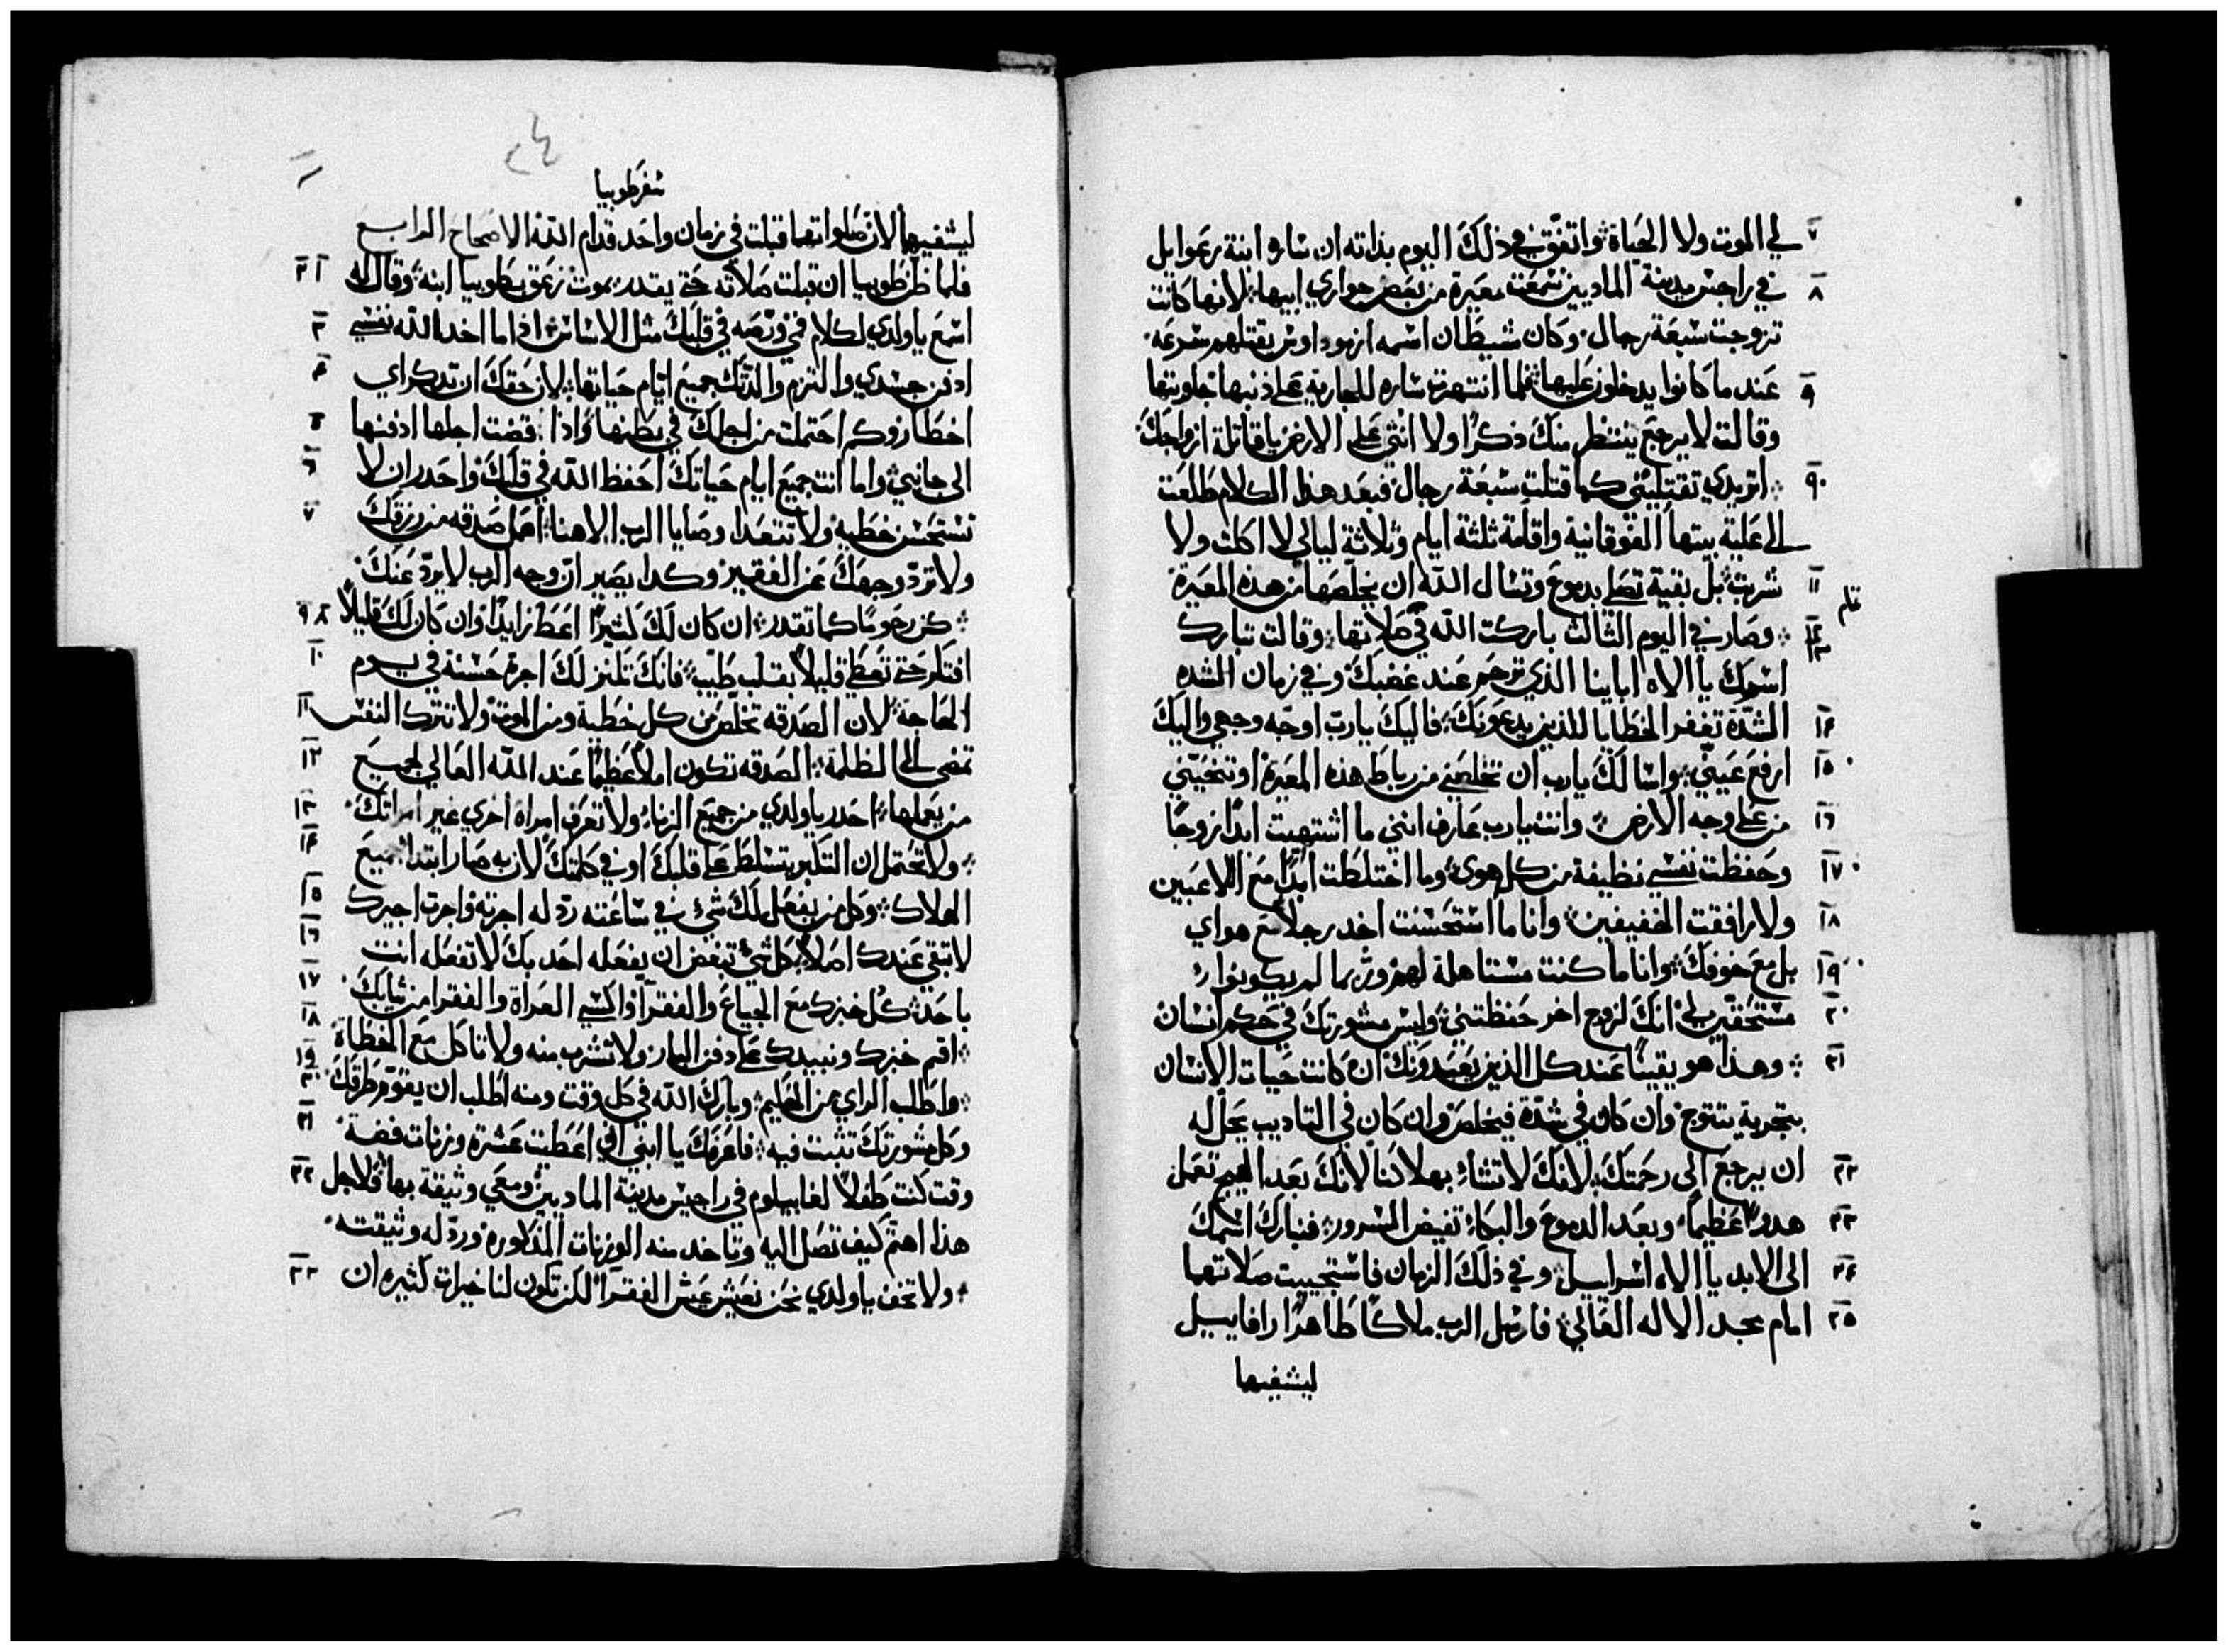 ٧ لي الموت ولا الحياة واتفق في ذلك اليوم بذاته ان ساره ابنة رعوايل
٨ في راجيس مدينة الماديين سمعت معيرة من بعض جواري ابيها لانها كانت
تزوجت سبعة رجال وكان شيطان اسمه ازموداوس يقتلهم سرعه
٩ عند ما كانوا يدخلون عليها فلما انتهرت ساره للجارية على ذنبها جاوبتها
وقالت لا يرجع ينتظر منك ذكرا ولا انثى على الارض يا قاتلة ازواجك
٩٠ اتريدي تقتليني كما قتلت سبعة رجال فبعد هذا الكلام طلعت
الى علية بيتها الفوقانية واقامة ثلثة ايام وثلاثة ليالي لا اكلت ولا
١١ شربت بل بقية تصلي بدموع وتسال الله ان يخلصها من هذه المعيرة
١٢ ١٣ وصار في اليوم الثالث باركت الله في صلاتها وقالت تبارك
اسمك يا الاه اباينا الذي ترحم عند غضبك وفي زمان الشده
١٤ الشدة تغفر الخطايا للذين يدعونك فاليك يا رب اوجه وجهي واليك
١٥ ارفع عيني واسالك يا رب ان تخلصني من رباط هذه المعيرة او تنحيني
١٦ من على وجه الارض وانت يا رب عارف انني ما اشتهيت ابدا زوجا
١٧ وحفظت نفسي نظيفة من كل هوى وما اختلطت ابدا مع اللاعبين
١٨ ولا رافقت الخفيفين وانا ما استحسنت اخد رجلا مع هواي
١٩ بل مع خوفك وانا ما كنت مستاهلة لهم وربما لم يكونوا
٢٠ مستحقين لي انك لزوج اخر حفظتني وليس مشورتك في حكم انسان
٢١ وهذا هو يقينا عند كل الذين يعبدونك ان كانت حيات الانسان
بتجربة يتتوج وان كان في شدة فيخلص وان كان في التاديب يحل له
٢٢ ان يرجع الى رحمتك لانك لا تشاء بهلاكنا لانك بعد الهيج تعمل
٢٣ هدوا عظيما وبعد الدموع والبكاء تفيض السرور فتبارك اسمك
٢٤ الى الابد يا الاه اسراييل وفي ذلك الزمان فاستجيبت صلاتهما
٢٥ امام مجد الاله العالي فارسل الرب ملاكا طاهرا رافاييل
ليشفيها
٢٤
سفر طوبيا
ليشفيهما لان صلواتهما قبلت في زمان واحد قدام الله الاصحاح الرابع
١ ٢ فلما ظن طوبيا ان قبلت صلاته حتى يقدر يموت زعق طوبيا ابنه وقال له
٣ اسمع يا ولدي لكلام فمي وضعه في قلبك مثل الاساس اذا ما اخد الله نفسي
٤ ادفن جسدي والتزم والدتك جميع ايام حياتها لان حقك ان تدكر اي
٥ اخطار وكم احتملت من اجلك في بطنها واذا قضت اجلها ادفنها
٦ الى جانبي واما انت جميع ايام حياتك احفظ الله في قلبك واحدر ان لا
٧ تستحسن خطيه ولا تتعدا وصايا الرب الاهنا اعمل صدقه من رزقك
ولا ترد وجهك عن الفقير وكدا يصير ان وجه الرب لا يرد عنك
٨ ٩ كن رحوما كما تقدر ان كان لك كثيرا اعط زايدا وان كان لك قليلا
١٠ افتكر حتى تعطي قليلا بقلب طيب فانك تكنز لك اجرة حسنة في يوم
١١ الحاجة لان الصدقه تخلص من كل خطية ومن الموت ولا تترك النفس
١٢ تمضي الى الظلمة الصدقه تكون املا عظيما عند الله العالي لجميع
١٣ من يعملها احدر يا ولدي من جميع الزناء ولا تعرف امراة اخرى غير امراتك
١٤ ولا تحتمل ان التكبر يتسلط على قلبك او في كلمتك لان به صار ابتدا جميع
١٥ الهلاك وكل من يفعل لك شي في ساعته رد له اجرته واجرت اجيرك
١٦ لا تبقي عندك اصلا كل شي تبغض ان يفعله احد بك لا تفعله انت
١٧ باحد كل خبزك مع الجياع والفقرا واكسي العراة والفقرا من ثيابك
١٨ اقم خبزك ونبيدك على دفن البار ولا تشرب منه ولا تاكل مع الخطاة
١٩ ٢٠ واطلب الراي من الحليم وبارك الله في كل وقت ومنه اطلب ان يقوم طرقك
٢١ وكل مشورتك تثبت فيه فاعرفك يا ابني اني اعطيت عشرة وزنات فضة
٢٢ وقت كنت طفلا لغابيلوم في راجيس مدينة الماديين ومعي وثيقة بها فلاجل
هذا اهتم كيف تصل اليه وتاخد منه الوزنات المذكوره ورد له وثيقته
٢٣ ولا تخف يا ولدي نحن نعيش عيش الفقرا لكن تكون لنا خيرات كثيره ان